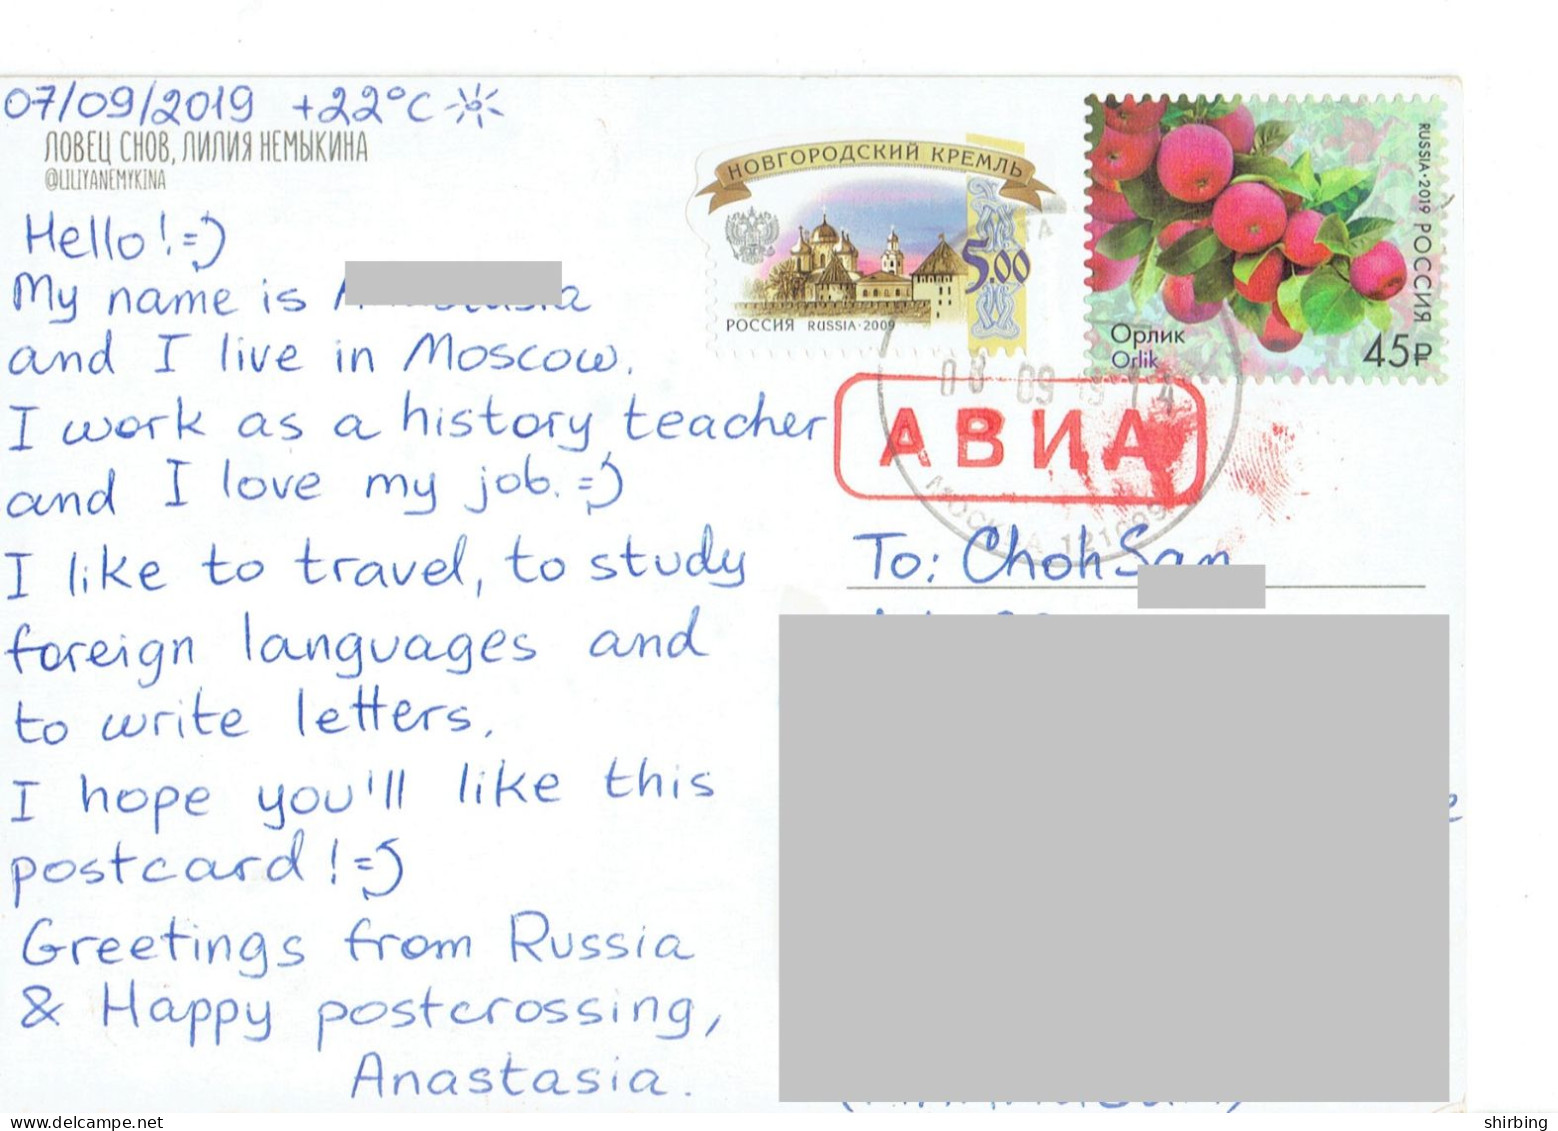 07/09/2019 +22°C
ЛОВЕЦ СНОВ, ЛИЛИЯ НЕМЫКИНА
@LILIYANEMYKINA
Hello! =)
My name is
and I live in Moscow.
I work as a history teacher
and I love my job. =)
I like to travel, to study
foreign languages and
to write letters.
I hope you'll like this
postcard! =)
Greetings from Russia
& Happy postcrossing,
Anastasia.
НОВГОРОДСКИЙ КРЕМЛЬ
5.00
РОССИЯ RUSSIA·2009
RUSSIA·2019 РОССИЯ
Орлик
Orlik
45₽
АВИА
МОСКВА 121099
To: Choh San
shirbing